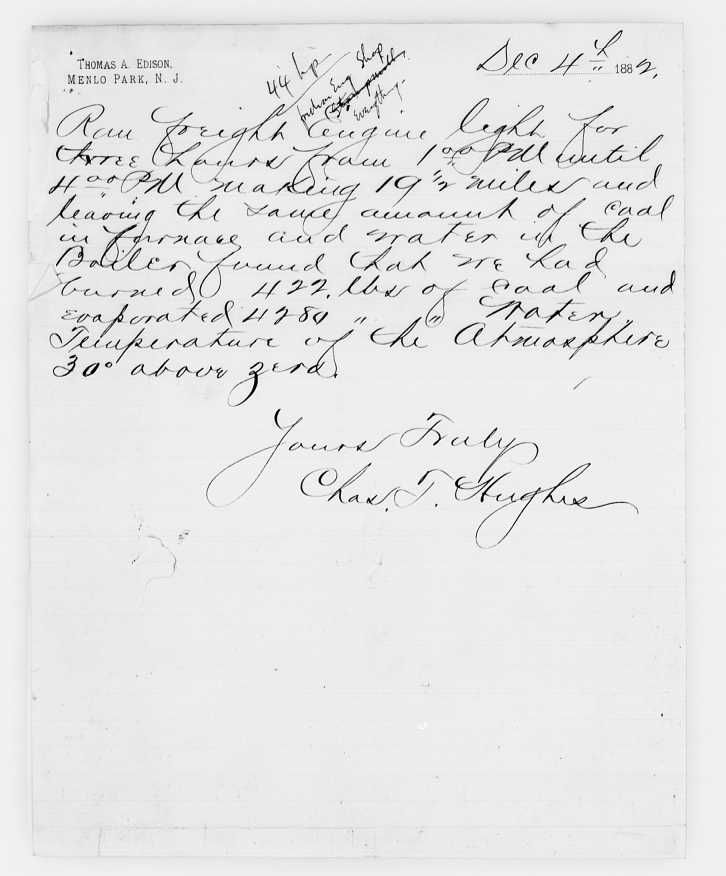 THOMAS A. EDISON,
MENLO PARK, N. J.
Dec 4th 1882.
44 hp
Eng Shop
everything.
Ran freight engine light for
three hours from 1 00 PM until
4 00 PM making 19 1/2 miles and
leaving the same amount of coal
in furnace and water in the
Boiler found that we had
burned 422. lbs of coal and
evaporated 4280 " " Water,
Temperature of the Atmosphere
30° above zero.
Yours Truly
Chas. T. Hughes